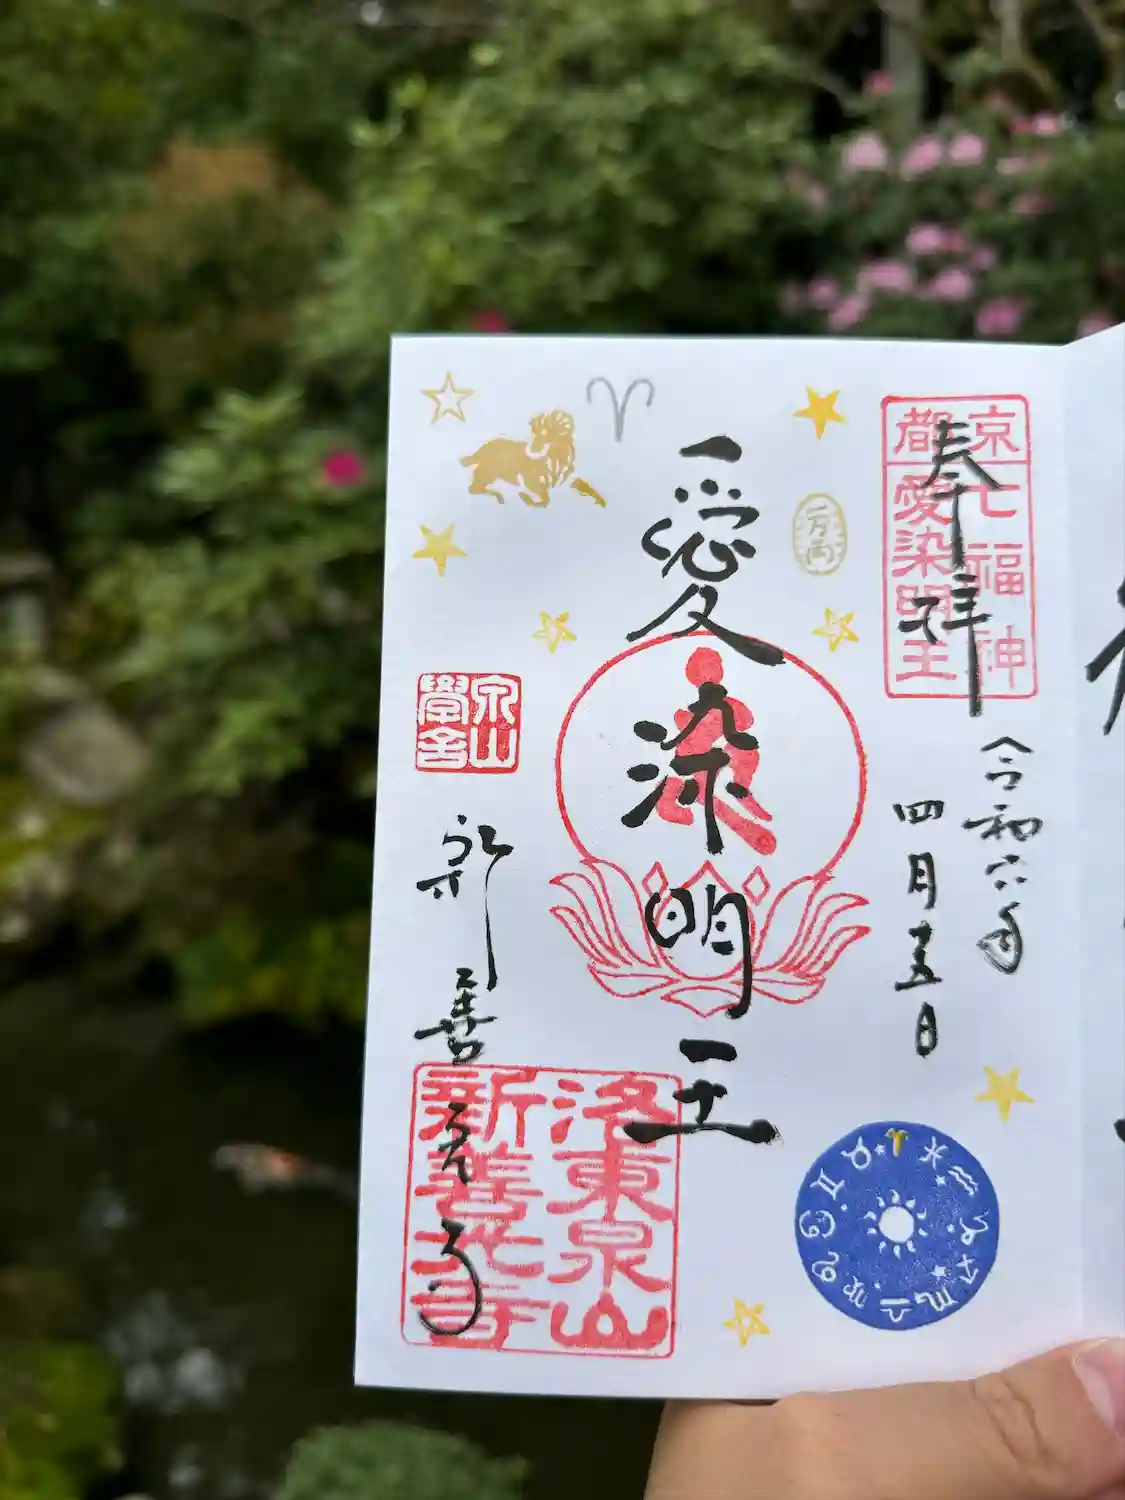 京都
七福神
愛染明王
奉拝
令和六年
四月十五日
愛染明王
泉山
學舎
新善光寺
洛東泉山
新善光寺